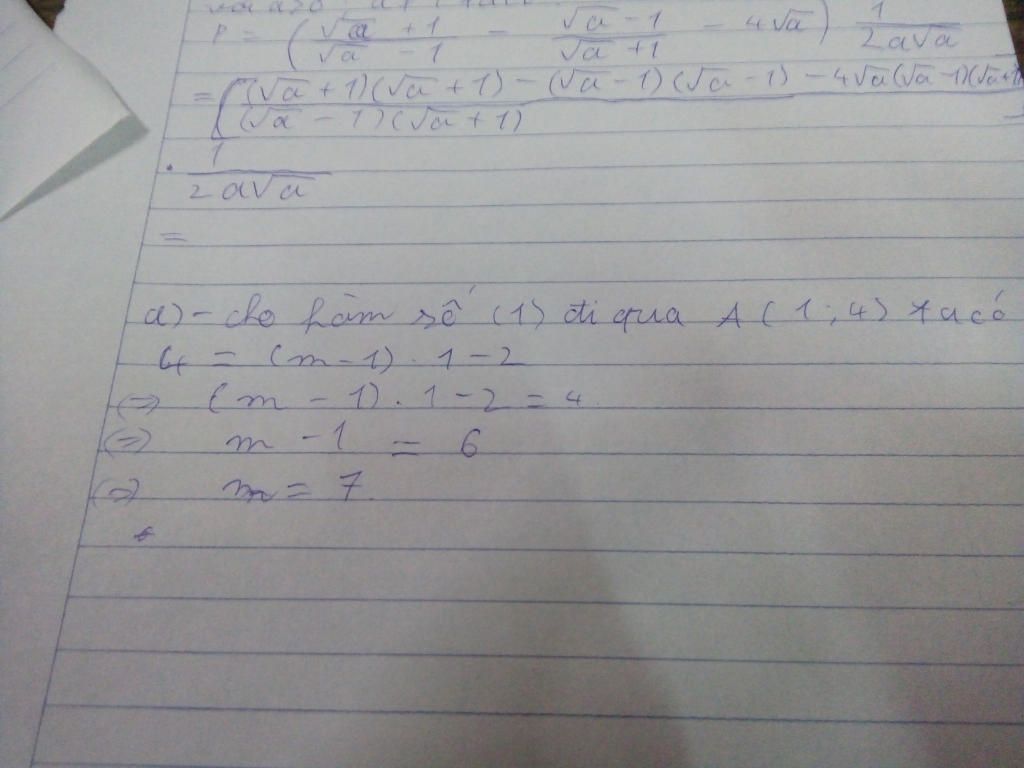 P = ( (√a + 1)/(√a - 1) - (√a - 1)/(√a + 1) - 4√a ) 1/(2a√a)
= [ ((√a + 1)(√a + 1) - (√a - 1)(√a - 1) - 4√a(√a - 1)(√a + 1)) / ((√a - 1)(√a + 1)) ]
. 1/(2a√a)
=
a) - cho hàm số (1) đi qua A (1 ; 4) ta có
4 = (m - 1) . 1 - 2
(=) (m - 1) . 1 - 2 = 4
(=) m - 1 = 6
(=) m = 7.